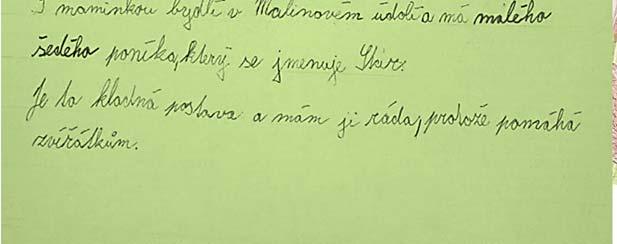 S maminkou bydlí v Malinovém údolí a má malého
šedého poníka, který se jmenuje Stár.
Je to kladná postava a mám ji ráda, protože pomáhá
zvířátkům.